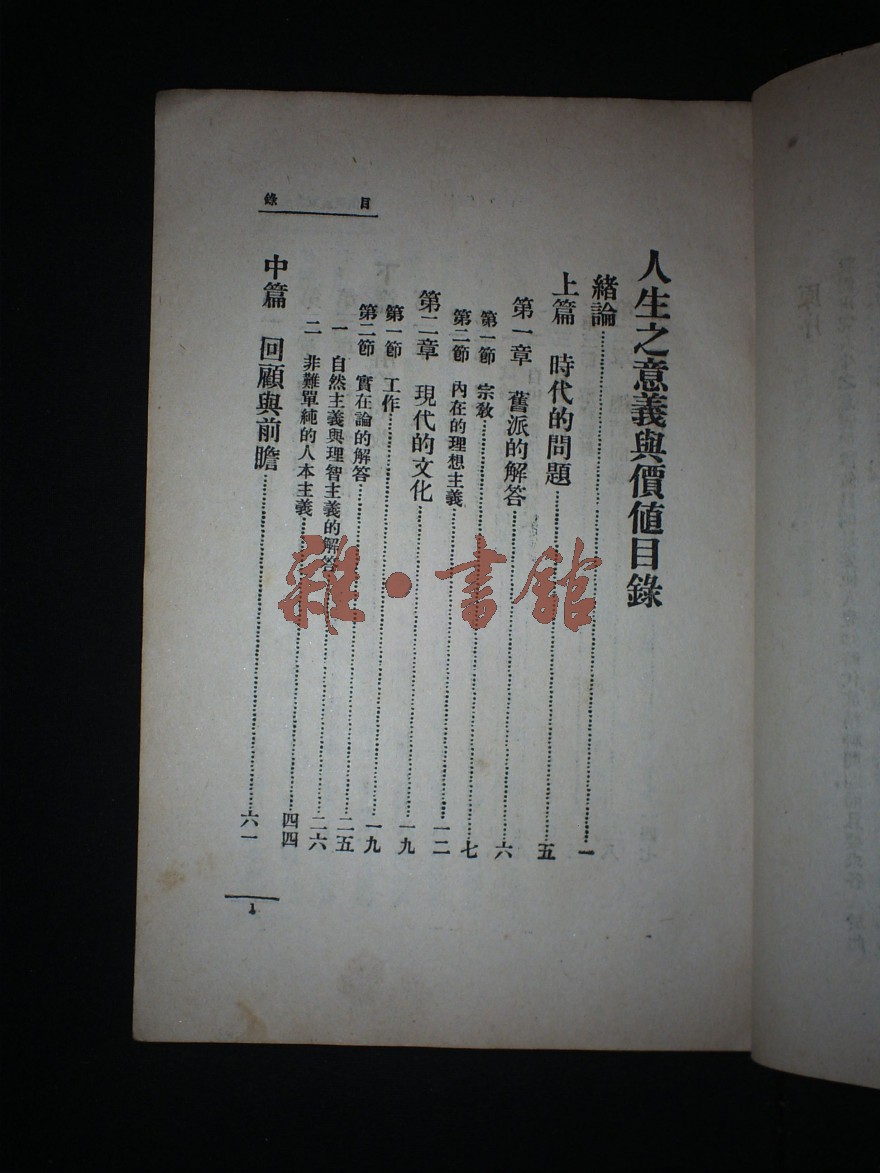 目錄
人生之意義與價値目錄
緒論……一
上篇 時代的問題……五
第一章 舊派的解答……六
第一節 宗敎……七
第二節 內在的理想主義……一二
第二章 現代的文化……一九
第一節 工作……一九
第二節 實在論的解答……二五
一 自然主義與理智主義的解答……二六
二 非難單純的人本主義……四四
中篇 回顧與前瞻……六一
雜·書館
原序